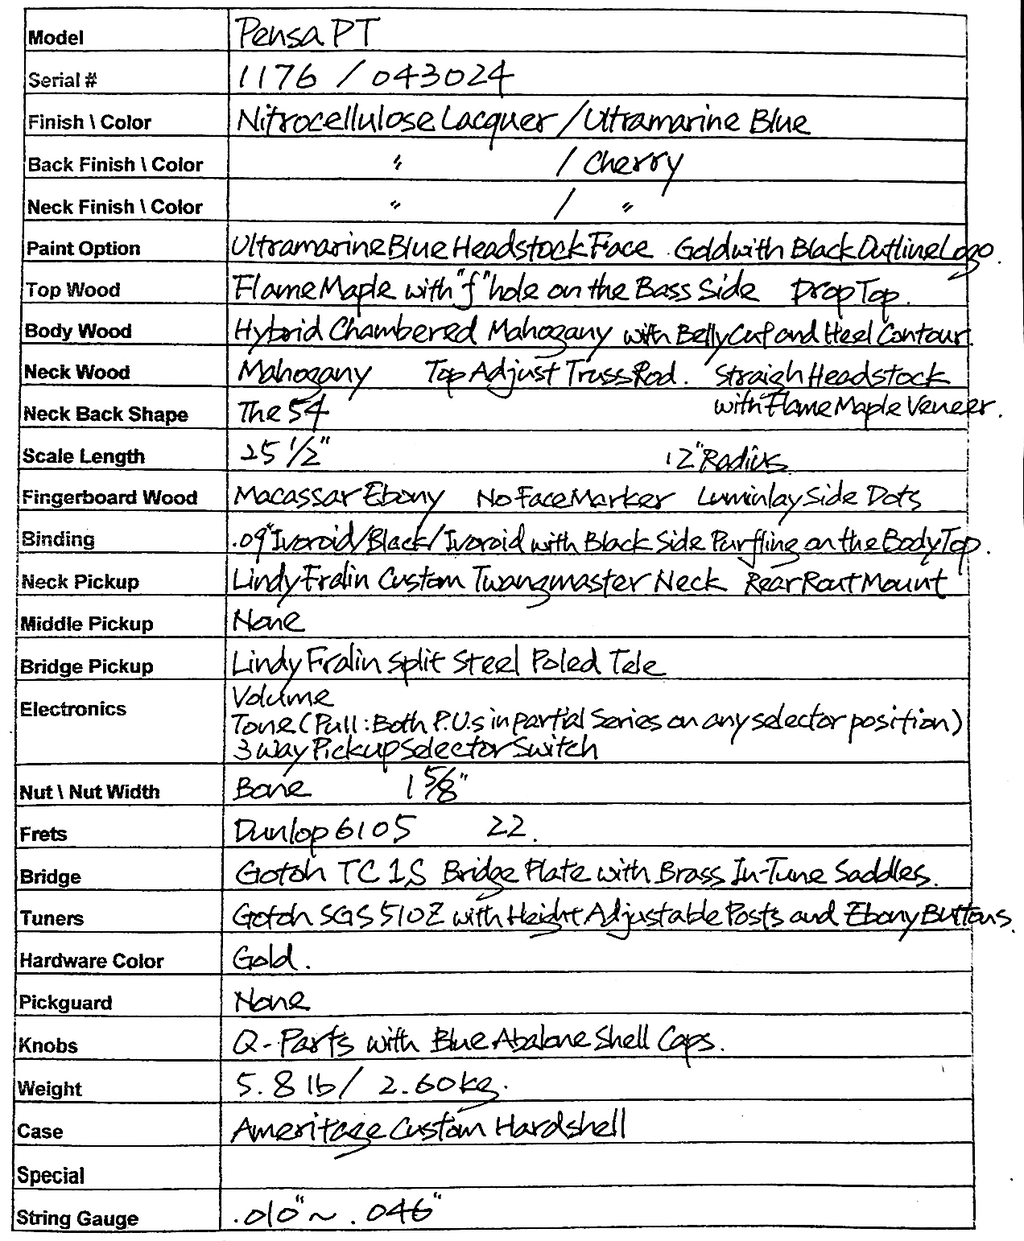 Model Pensa PT
Serial # 1176 / 043024
Finish \ Color Nitrocellulose Lacquer / Ultramarine Blue
Back Finish \ Color " / Cherry
Neck Finish \ Color " / "
Paint Option Ultramarine Blue Headstock Face. Gold with Black Outline Logo.
Top Wood Flame Maple with "f" hole on the Bass Side Drop Top.
Body Wood Hybrid Chambered Mahogany with Belly Cut and Heel Contour.
Neck Wood Mahogany Top Adjust Truss Rod. Straigh Headstock
Neck Back Shape The 54 with Flame Maple Veneer.
Scale Length 25 1/2" 12" Radius
Fingerboard Wood Macassar Ebony No Face Marker Luminlay Side Dots
Binding .09" Ivoroid/Black/Ivoroid with Black Side Purfling on the Body Top.
Neck Pickup Lindy Fralin Custom Twangmaster Neck Rear Rout Mount
Middle Pickup None
Bridge Pickup Lindy Fralin Split Steel Poled Tele
Electronics Volume
Tone (Pull : Both P.U.s in partial Series on any selector position)
3 way Pickup Selector Switch
Nut \ Nut Width Bone 1 5/8"
Frets Dunlop 6105 22.
Bridge Gotoh TC 1S Bridge Plate with Brass In-Tune Saddles.
Tuners Gotoh SGS 510Z with Height Adjustable Posts and Ebony Buttons.
Hardware Color Gold.
Pickguard None
Knobs Q-Parts with Blue Abalone Shell Caps.
Weight 5.8 lb / 2.60kg.
Case Ameritage Custom Hardshell
Special
String Gauge .010" ~ .046"